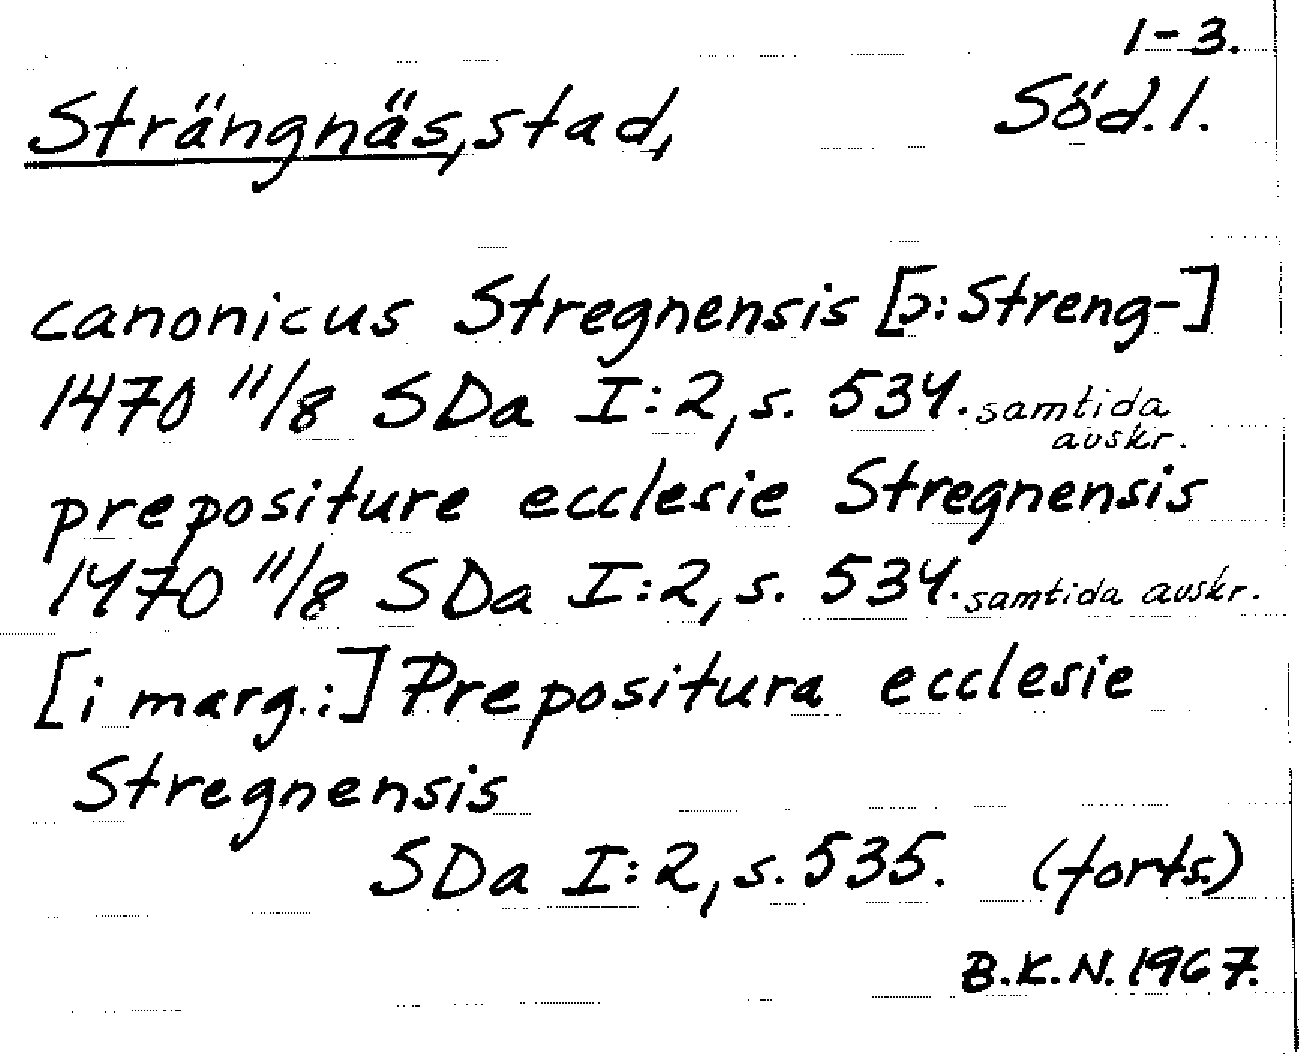 1-3.
Strängnäs, stad, Söd. l.
canonicus Stregnensis [ɔ: Streng-]
1470 11/8 SDa I:2, s. 534. samtida
avskr.
prepositure ecclesie Stregnensis
1470 11/8 SDa I:2, s. 534. samtida avskr.
[i marg.:] Prepositura ecclesie
Stregnensis
SDa I:2, s. 535. (forts.)
B.K.N. 1967.